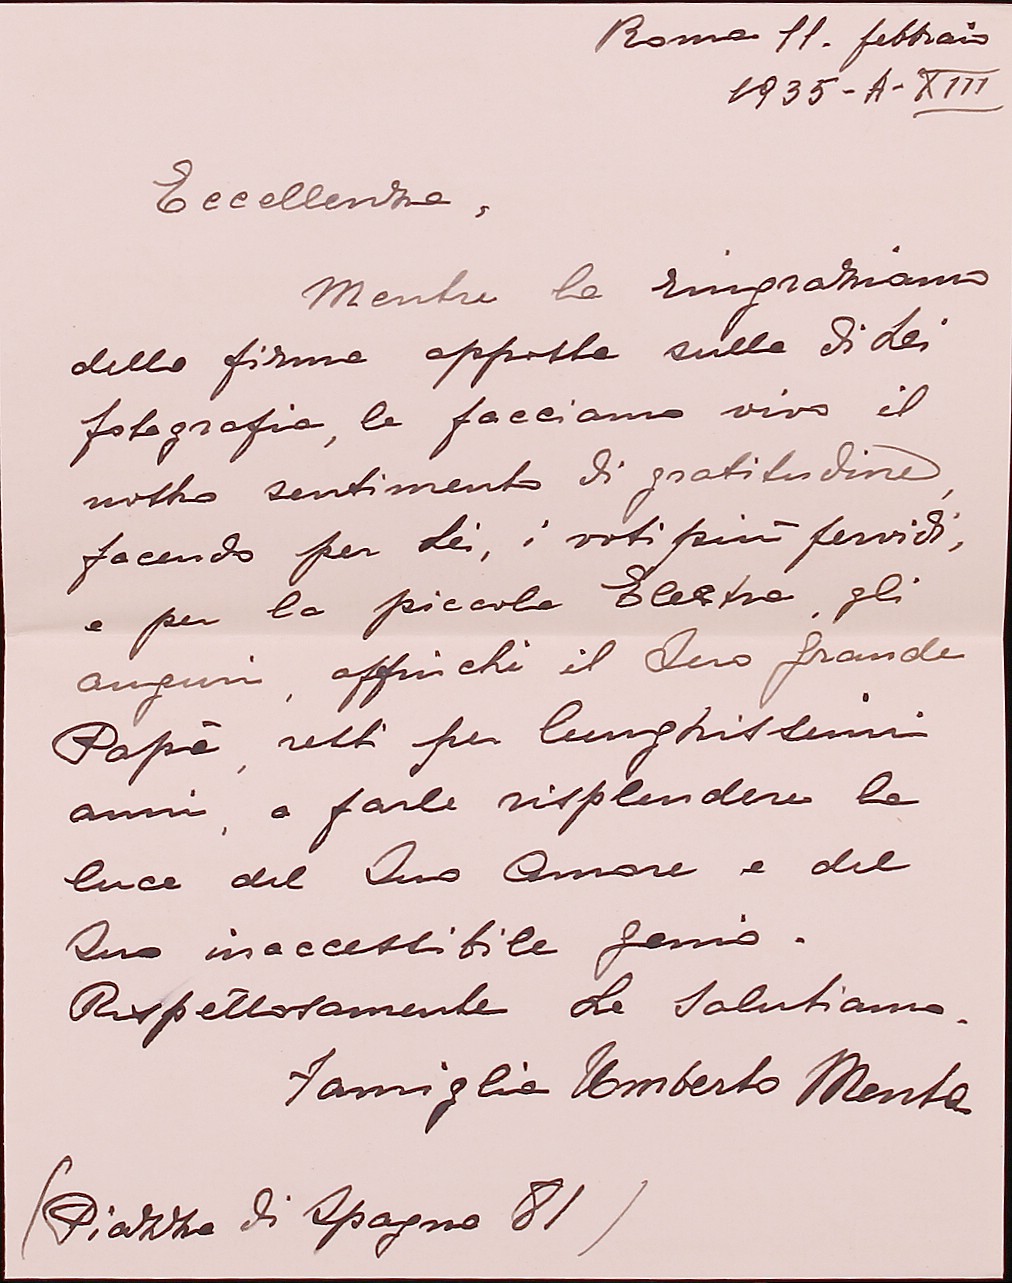 Roma 11. febbraio
1935-A-XIII
Eccellenza,
Mentre la ringraziamo
della firma apposta sulla di Lei
fotografia, le facciamo vivo il
nostro sentimento di gratitudine,
facendo per Lei, i voti più fervidi,
e per la piccola Elettra, gli
auguri, affinchè il Suo grande
Papà, resti per lunghissimi
anni, a farle risplendere la
luce del Suo Amore e del
Suo inaccessibile genio.
Rispettosamente La Salutiamo.
Famiglia Umberto Menta
(Piazza di Spagna 81)